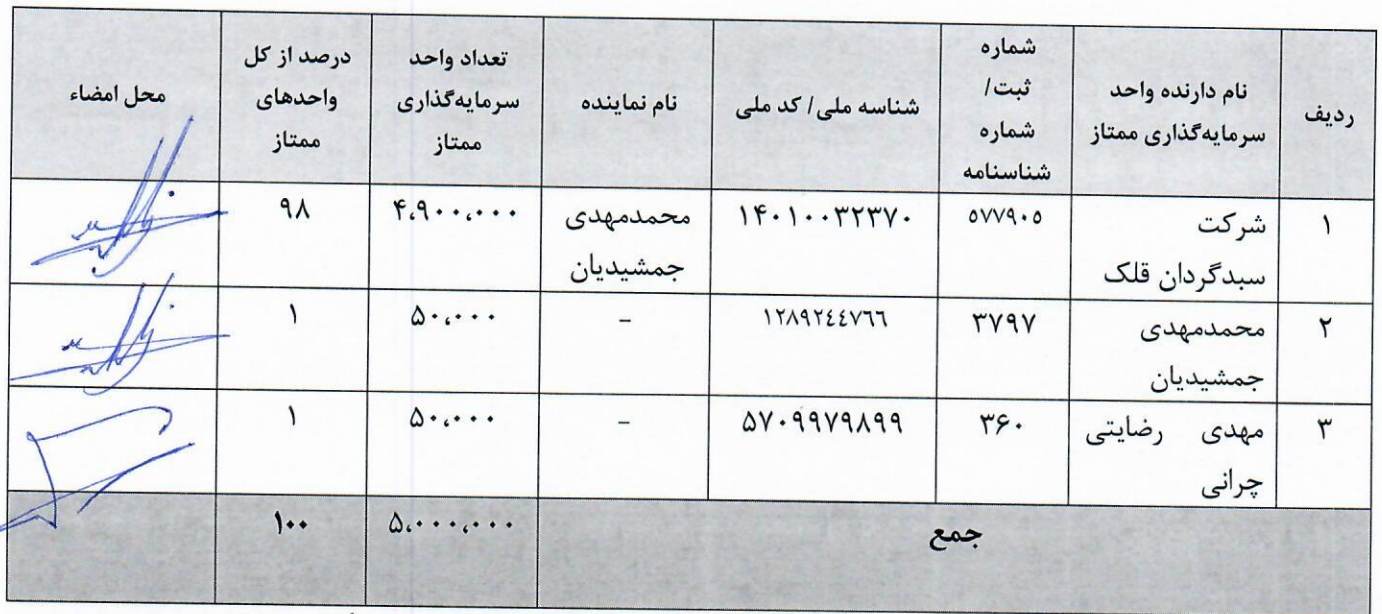 ردیف
نام دارنده واحد
سرمایه‌گذاری ممتاز
شماره
ثبت/
شماره
شناسنامه
شناسه ملی/ کد ملی
نام نماینده
تعداد واحد
سرمایه‌گذاری
ممتاز
درصد از کل
واحدهای
ممتاز
محل امضاء
۱
شرکت
سبدگردان قلک
٥٧٧٩٠٥
۱۴۰۱۰۰۳۲۳۷۰
محمدمهدی
جمشیدیان
۴،۹۰۰،۰۰۰
۹۸
۲
محمدمهدی
جمشیدیان
۳۷۹۷
١٢٨٩٢٤٤٧٦٦
–
۵۰،۰۰۰
۱
۳
مهدی رضایتی
چرانی
۳۶۰
۵۷۰۹۹۷۹۸۹۹
–
۵۰،۰۰۰
۱
جمع
۵،۰۰۰،۰۰۰
۱۰۰